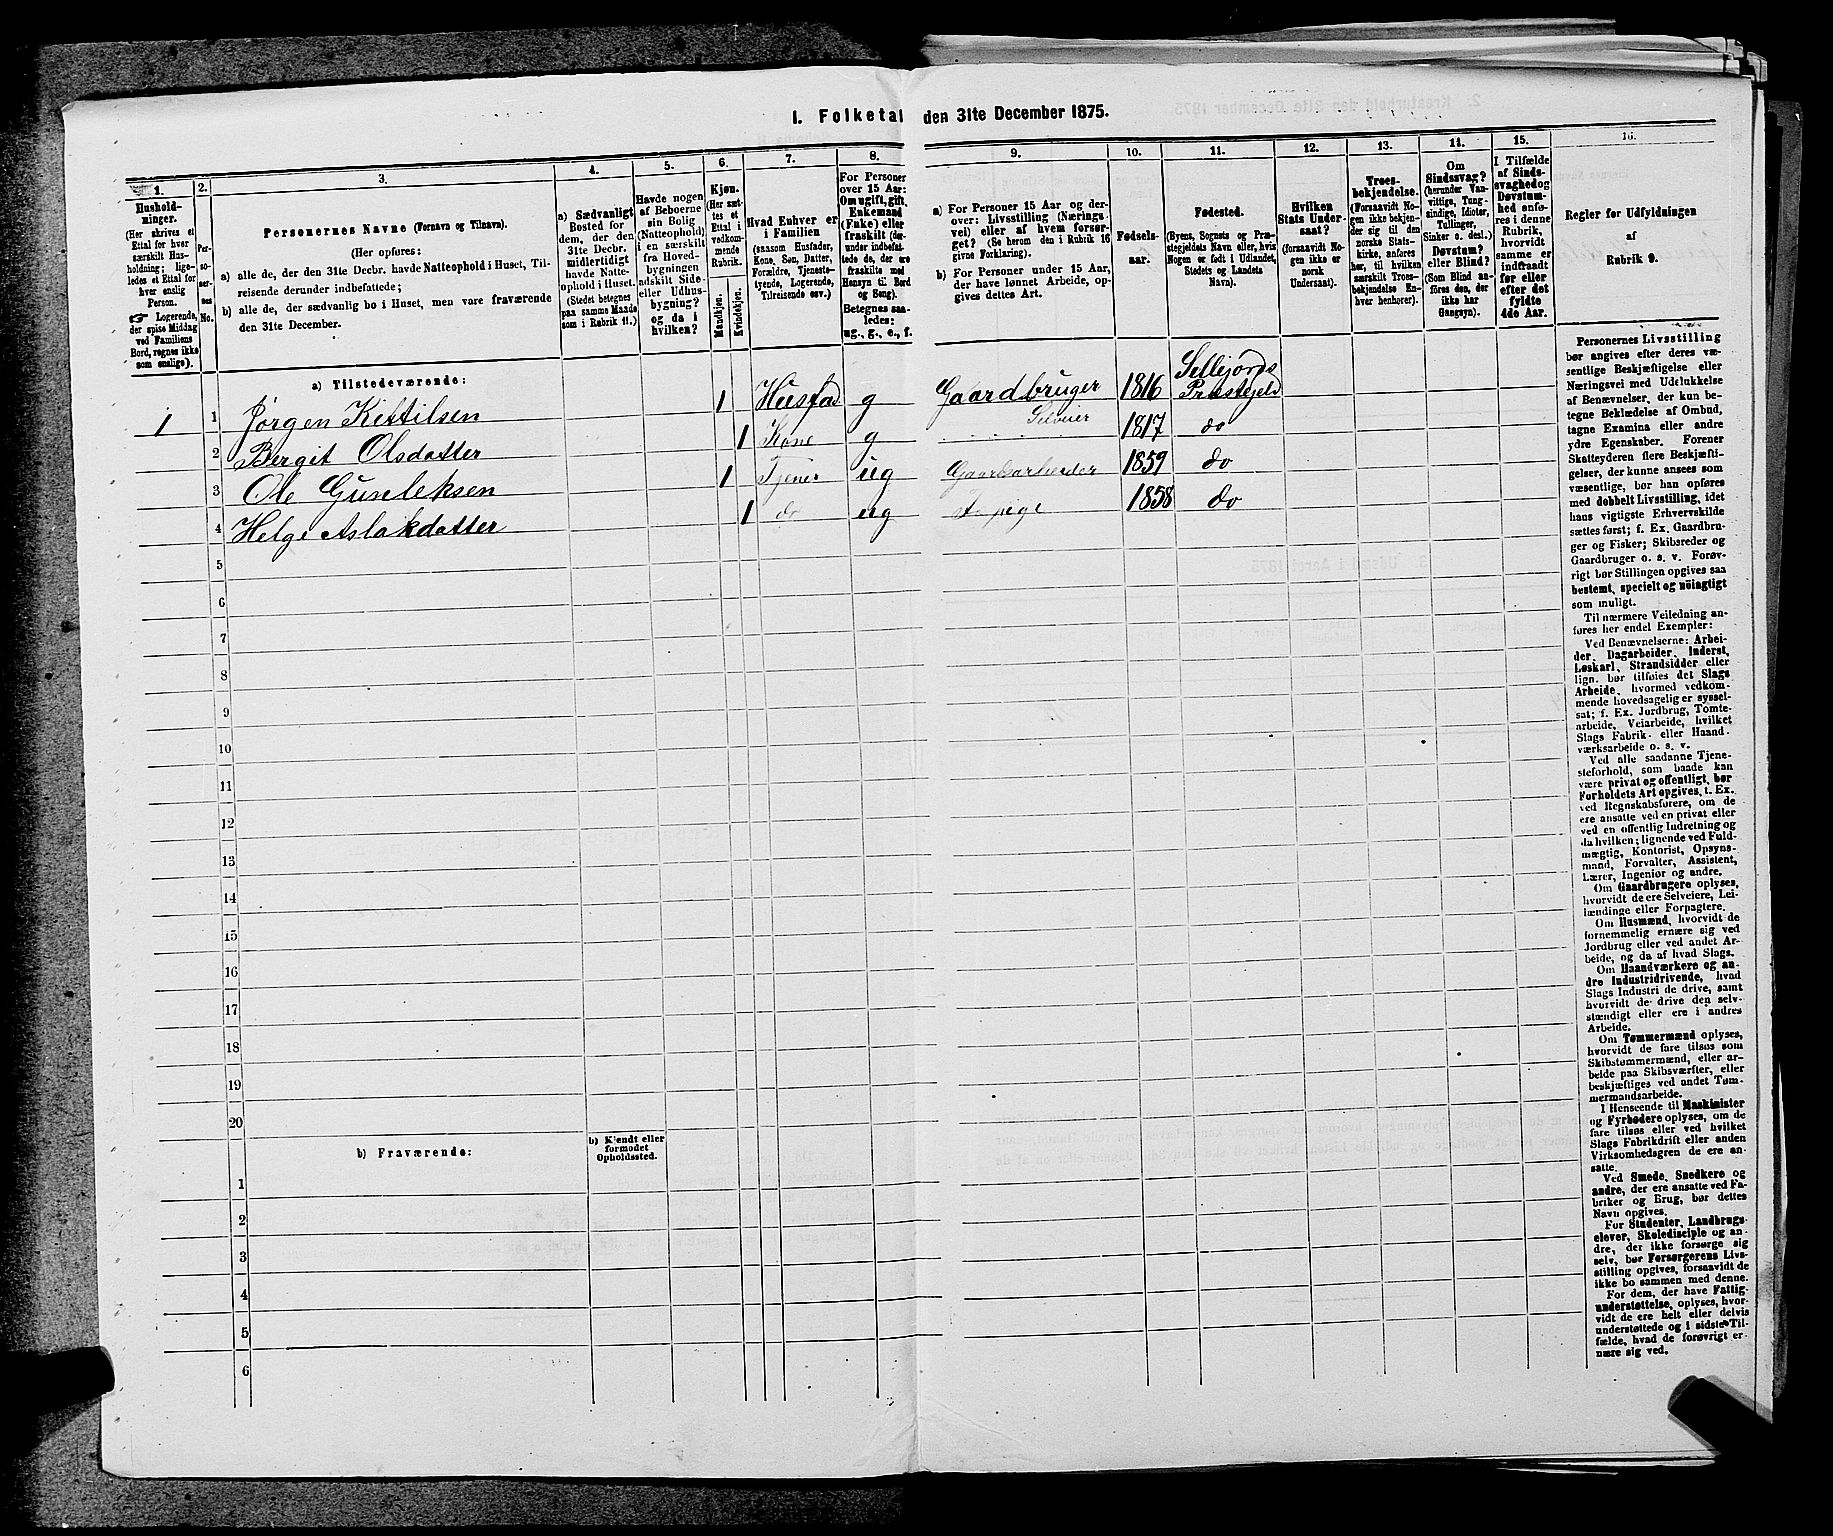 1. Folketal den 31te December 1875.
1.
Hushold-
ninger.
(Her skrives et
Ettal for hver
særskilt Hus-
holdning; lige-
ledes et Ettal for
hver enslig
Person.
☞ Logerende,
der spise Middag
ved Familiens
Bord, regnes ikke
som enslige).
2.
Per-
so-
ner-
nes
No.
3.
Personernes Navne (Fornavn og Tilnavn).
(Her opføres:
a) alle de, der den 31te Decbr. havde Natteophold i Huset, Til-
reisende derunder indbefattede;
b) alle de, der sædvanlig bo i Huset, men vare fraværende
den 31te December.
4.
a) Sædvanligt
Bosted for
dem, der den
31te Decbr.
midlertidigt
havde Natte-
ophold i Huset.
(Stedet betegnes
paa samme Maade
som i Rubrik 11.)
5.
Havde nogen
af Beboerne
sin Bolig
(Natteophold)
i en særskilt
fra Hoved-
bygningen
adskilt Side-
eller Udhus-
bygning?
og da i
hvilken?
6.
Kjøn.
(Her sæt-
tes et
Ettal i
vedkom-
mende
Rubrik.
Mandkjøn.
Kvindekjøn.
7.
Hvad Enhver er
i Familien
(saasom Husfader,
Kone, Søn, Datter,
Forældre, Tjeneste-
tyende, Logerende,
Tilreisende osv.)
8.
For Personer
over 15 Aar:
Om ugift, gift,
Enkemand
(Enke) eller
fraskilt (der-
under indbefat-
tede de, der ere
fraskilte med
Hensyn til Bord
og Seng).
Betegnes saa-
ledes:
ug., g., e., f.
9.
a) For Personer 15 Aar og der-
over: Livsstilling (Nærings-
vei) eller af hvem forsør-
get? (Se herom den i Rubrik 16
givne Forklaring).
b) For Personer under 15 Aar,
der have lønnet Arbeide, op-
gives dettes Art.
10.
Fødsels-
aar.
11.
Fødested.
(Byens, Sognets og Præ-
stegjeldets Navn eller, hvis
Nogen er født i Udlandet,
Stedets og Landets
Navn).
12.
Hvilken
Stats Under-
saat?
(forsaavidt No-
gen ikke er
norsk
Undersaat).
13.
Troes-
bekjendelse.
(Forsaavidt No-
gen ikke bekjen-
der sig til den
norske Stats-
kirke, anføres
her, til hvilken
særskilt Troes-
bekjendelse En-
hver henhører).
14.
Om
Sindssvag?
(herunder Van-
vittige, Tung-
sindige, Idioter,
Tullinger,
Sinker o. desl.).
Døvstum?
eller Blind?
(Som Blind an-
føres den, der
ikke har
Gangsyn).
15.
I Tilfælde
af Sinds-
svaghed og
Døvstum-
hed anfø-
res i denne
Rubrik,
hvorvidt
samme er
indtraadt
før eller
efter det
fyldte
4de Aar.
16.
Regler for Udfyldningen
af
Rubrik 9.
a) Tilstedeværende:
1 1 Jørgen Kittilsen 1 Husfad g Gaardbruger Selveier 1816 Sillejords Præstegjeld
2 Bergit Olsdatter 1 Kone g 1817 do
3 Ole Gunleksen 1 Tjener ug Gaardsarbeider 1859 do
4 Helge Aslakdatter 1 do ug pige 1858 do
5
6
7
8
9
10
11
12
13
14
15
16
17
18
19
20
b) Fraværende:
b) Kjendt eller
formodet
Opholdssted.
1
2
3
4
5
6
Personernes Livsstilling
bør angives efter deres væ-
sentlige Beskjæftigelse eller
Næringsvei med Udelukkelse
af Benævnelser, der kun be-
tegne Beklædelse af Ombud,
tagne Examina eller andre
ydre Egenskaber. Forener
Skatteyderen flere Beskjæfti-
gelser, der kunne ansees som
væsentlige, bør han opføres
med dobbelt Livsstilling, idet
hans vigtigste Erhvervskilde
sættes først; f. Ex. Gaardbru-
ger og Fisker; Skibsreder og
Gaardbruger o. s. v. Forøv-
rigt bør Stillingen opgives saa
bestemt, specielt og nöiagtigt
som muligt.
Til nærmere Veiledning an-
føres her endel Exempler:
Ved Benævnelserne: Arbei-
der, Dagarbeider, Inderst,
Løskarl, Strandsidder eller
lign. bør tilføies det Slags
Arbeide, hvormed vedkom-
mende hovedsagelig er syssel-
sat; f. Ex. Jordbrug, Tomte-
arbeide, Veiarbeide, hvilket
Slags Fabrik- eller Haand-
værksarbeide o. s. v.
Ved alle saadanne Tjene-
steforhold, som baade kan
være privat og offentligt, bør
Forholdets Art opgives, t. Ex.
ved Regnskabsførere, om de
ere ansatte ved en privat eller
ved en offentlig Indretning og
da hvilken; lignende ved Fuld-
mægtig, Kontorist, Opsyns-
mand, Forvalter, Assistent,
Lærer, Ingeniør og andre.
Om Gaardbrugere oplyses,
hvorvidt de ere Selveiere, Lei-
lændinge eller Forpagtere.
Om Husmænd, hvorvidt de
fornemmelig ernære sig ved
Jordbrug eller ved andet Ar-
beide, og da af hvad Slags.
Om Haandværkere og an-
dre Industridrivende, hvad
Slags Industri de drive, samt
hvorvidt de drive den selv-
stændigt eller ere i andres
Arbeide.
Om Tømmermænd oplyses,
hvorvidt de fare tilsøs som
Skibstømmermænd, eller ar-
beide paa Skibsværfter, eller
beskjæftiges ved andet Tøm-
mermandsarbeide.
I Henseende til Maskinister
og Fyrbødere oplyses, om de
fare tilsøs eller ved hvilket
Slags Fabrikdrift eller anden
Virksomhedsgren de ere an-
satte.
Ved Smede, Snedkere og
andre, der ere ansatte ved Fa-
briker og Brug, bør dettes
Navn opgives.
For Studenter, Landbrugs-
elever, Skoledisciple og an-
dre, der ikke forsørge sig
selv, bør Forsørgerens Livs-
stilling opgives, forsaavidt de
ikke bo sammen med denne.
For dem, der have Fattig-
understøttelse, oplyses, hvor-
vidt de ere helt eller delvis
understøttede og i sidste Til-
fælde, hvad de forøvrigt er-
nære sig ved.